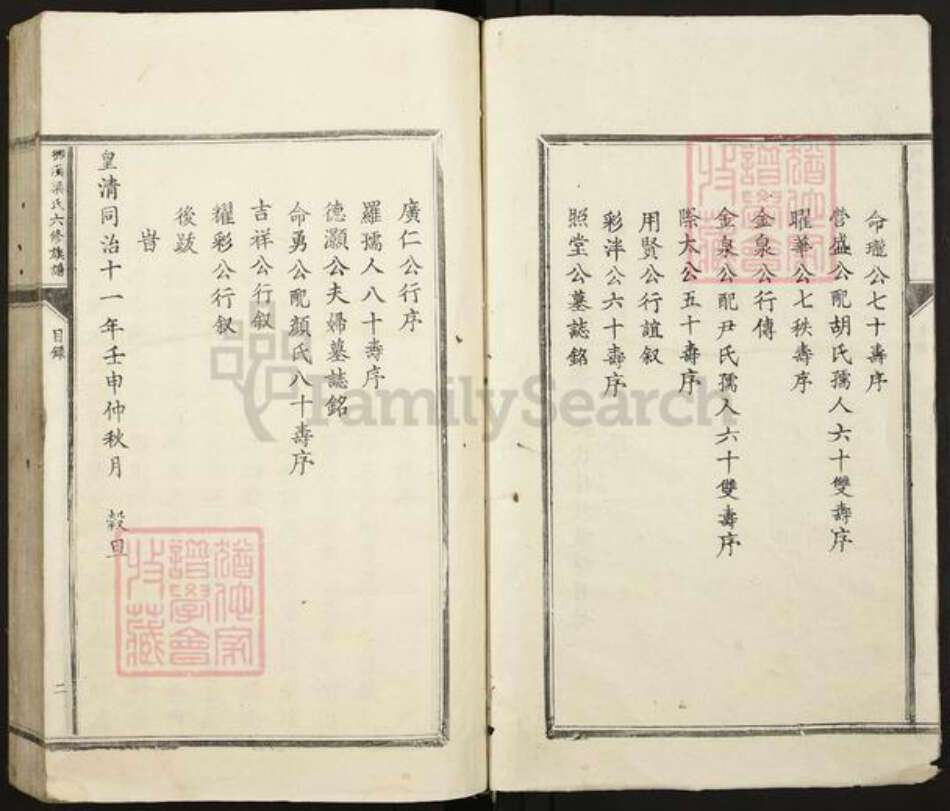 命瓏公七十壽序
營盛公配胡氏孺人六十雙壽序
曜華公七秩壽序
金泉公行傳
金泉公配尹氏孺人六十雙壽序
際大公五十壽序
用賢公行誼叙
彩泮公六十壽序
照堂公墓誌銘
廣仁公行序
羅孺人八十壽序
德灝公夫婦墓誌銘
命勇公配顏氏八十壽序
吉祥公行叙
耀彩公行叙
後跋
皇清同治十一年壬申仲秋月 穀旦
梁氏六修族譜
目錄
二
猶他家譜學會收藏
猶他家譜學會收藏
FamilySearch